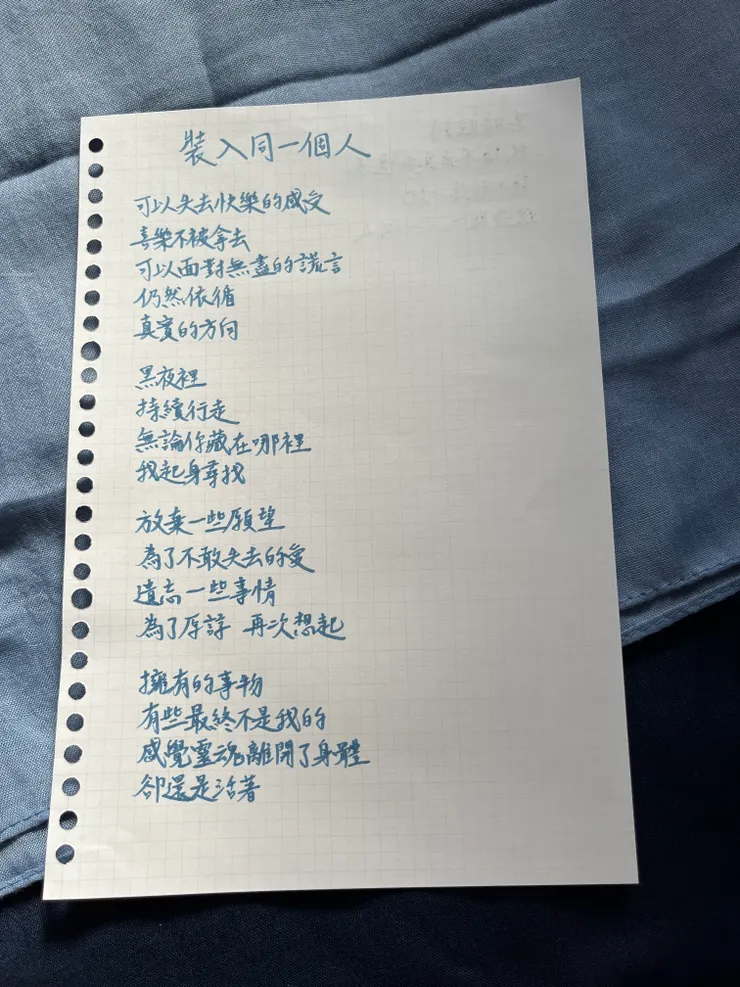 裝入同一個人
可以失去快樂的感受
喜樂不被拿去
可以面對無盡的謊言
仍然依循
真實的方向
黑夜裡
持續行走
無論你藏在哪裡
我起身尋找
放棄一些願望
為了不敢失去的愛
遺忘一些事情
為了原諒 再次想起
擁有的事物
有些最終不是我的
感覺靈魂離開了身體
卻還是活著